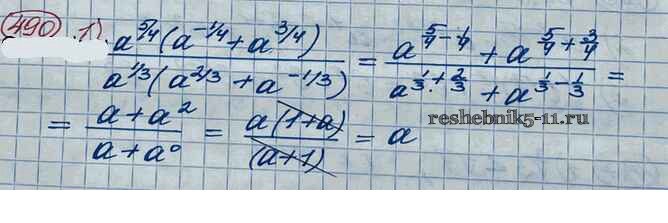 490 1) a^{5/4}(a^{-1/4}+a^{3/4}) / a^{1/3}(a^{2/3}+a^{-1/3}) = a^{5/4-1/4}+a^{5/4+3/4} / a^{1/3+2/3}+a^{1/3-1/3} =
= a+a² / a+a⁰ = a(1+a) / (a+1) = a
reshebnik5-11.ru